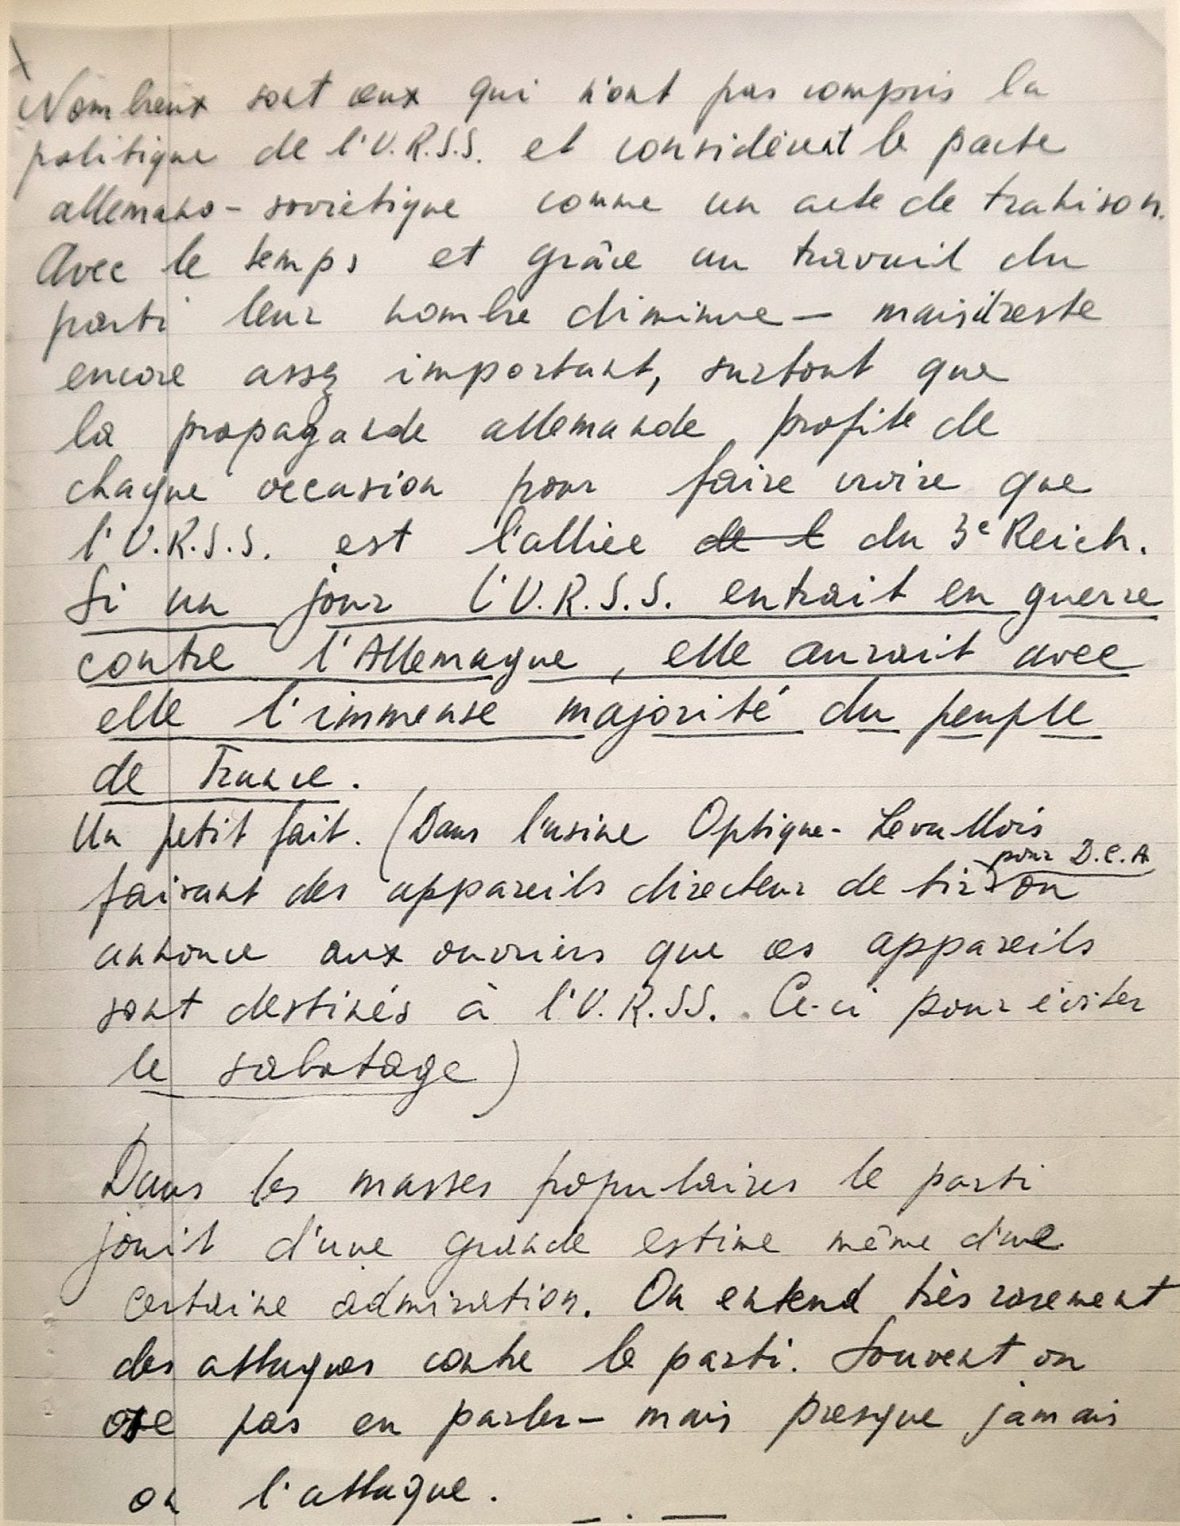 Nombreux sont ceux qui n'ont pas compris la
politique de l'U.R.S.S. et considèrent le pacte
allemano-soviétique comme un acte de trahison.
Avec le temps et grâce au travail du
parti leur nombre diminue – mais il reste
encore assez important, surtout que
la propagande allemande profite de
chaque occasion pour faire croire que
l'U.R.S.S. est l'alliée de l du 3e Reich.
Si un jour l'U.R.S.S. entrait en guerre
contre l'Allemagne, elle aurait avec
elle l'immense majorité du peuple
de France.
Un petit fait. (Dans l'usine Optique-Levallois
pour D.C.A
faisant des appareils directeur de tir on
annonce aux ouvriers que ces appareils
sont destinés à l'U.R.SS. Ce-ci pour éviter
le sabotage)
Dans les masses populaires le parti
jouit d'une grande estime même d'une
certaine admiration. On entend très rarement
des attaques contre le parti. Souvent on
ose pas en parler – mais presque jamais
on l'attaque.